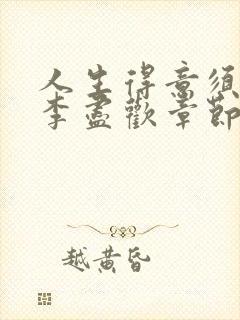 人生得意须
李盡歡章節
越黄昏